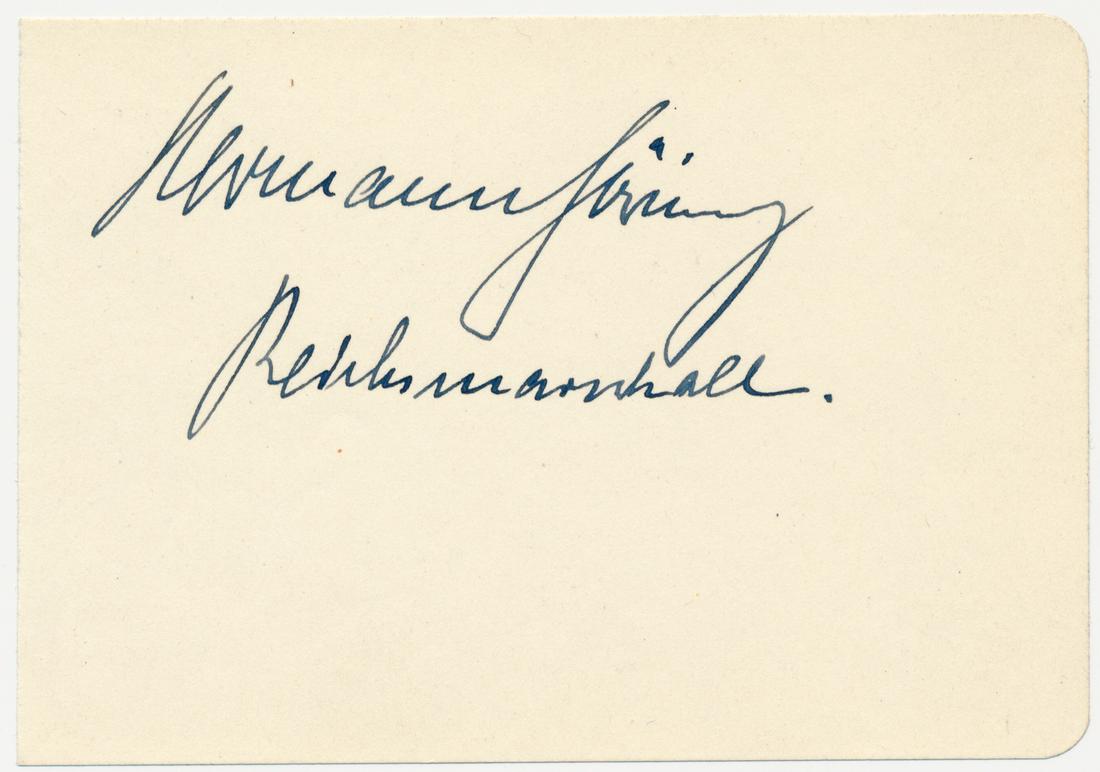 Hermann Göring
Reichsmarschall.